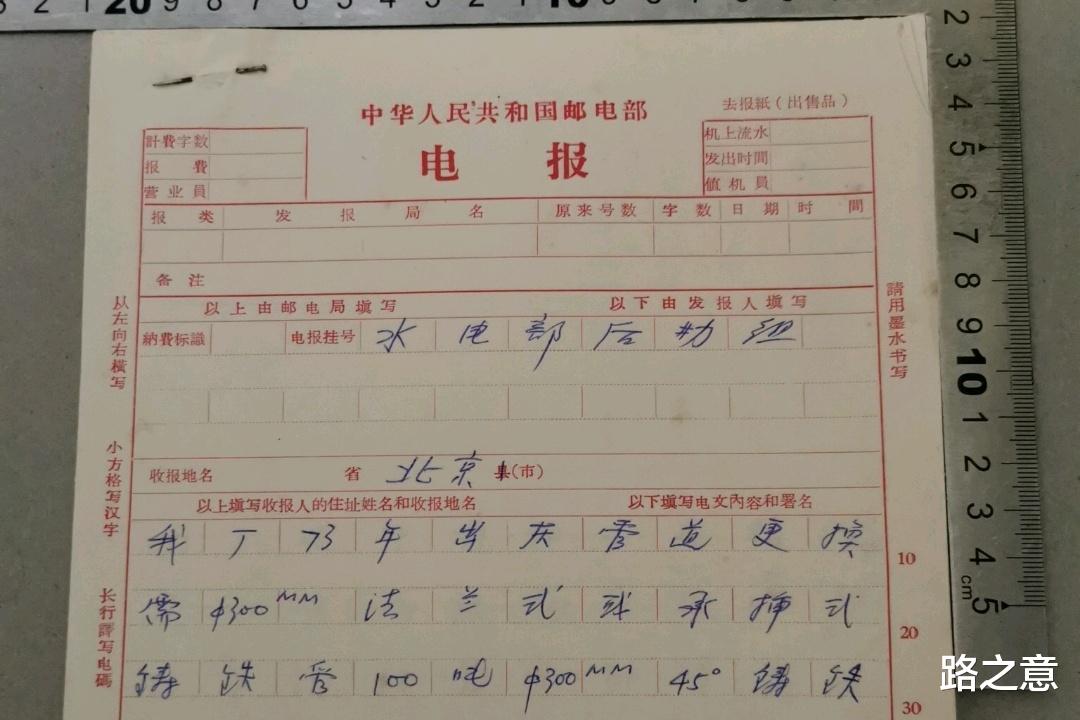 3 2 1 20 9 8 7 6 5 4 3 2 1 10
中华人民共和国邮电部
去报紙(出售品)
电 报
計費字数
报 費
营业員
机上流水
发出时間
值机員
报 类 发 报 局 名 原来号数 字 数 日 期 时 間
备 注
以上由邮电局填写 以下由发报人填写
納費标識 电报挂号 水 电 部 后 勤 组
收报地名 省 北京 县(市)
以上填写收报人的住址姓名和收报地名 以下填写电文內容和署名
我 厂 73 年 出 灰 管 道 更 换 10
需 φ300 MM 法 兰 式 或 承 插 式 20
铸 铁 管 100 吨 φ300 MM 45° 铸 铁 30
从左向右橫写
小方格写汉字
长行譯写电碼
請用墨水书写
2 3 4 5 6 7 8 9 10 1 2 3 4 5
cm
路之意